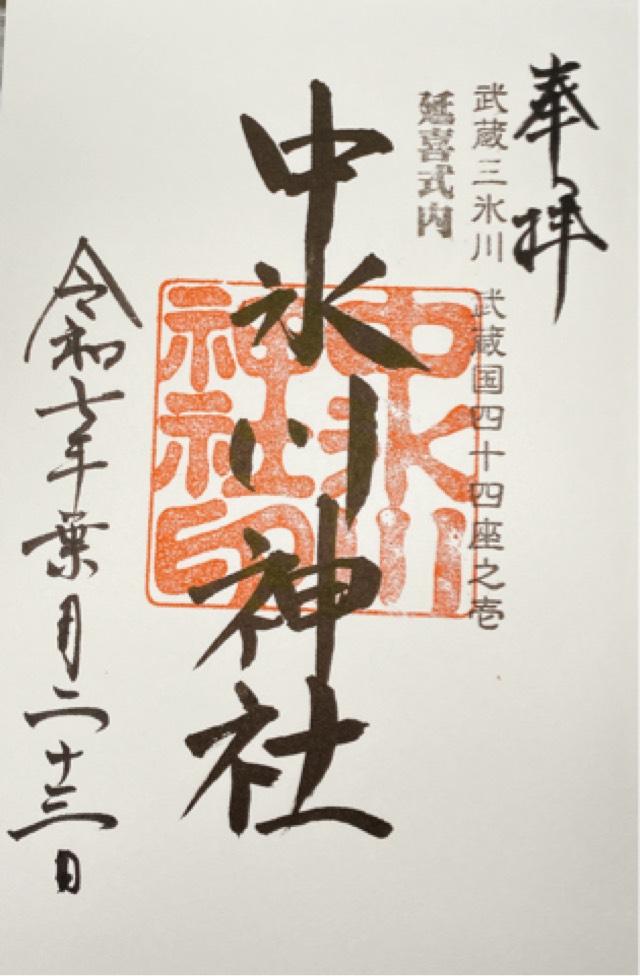 奉拝
武蔵三氷川 武蔵国四十四座之壱
延喜式内
中氷川神社
中氷川
神社印
令和七年葉月二十三日